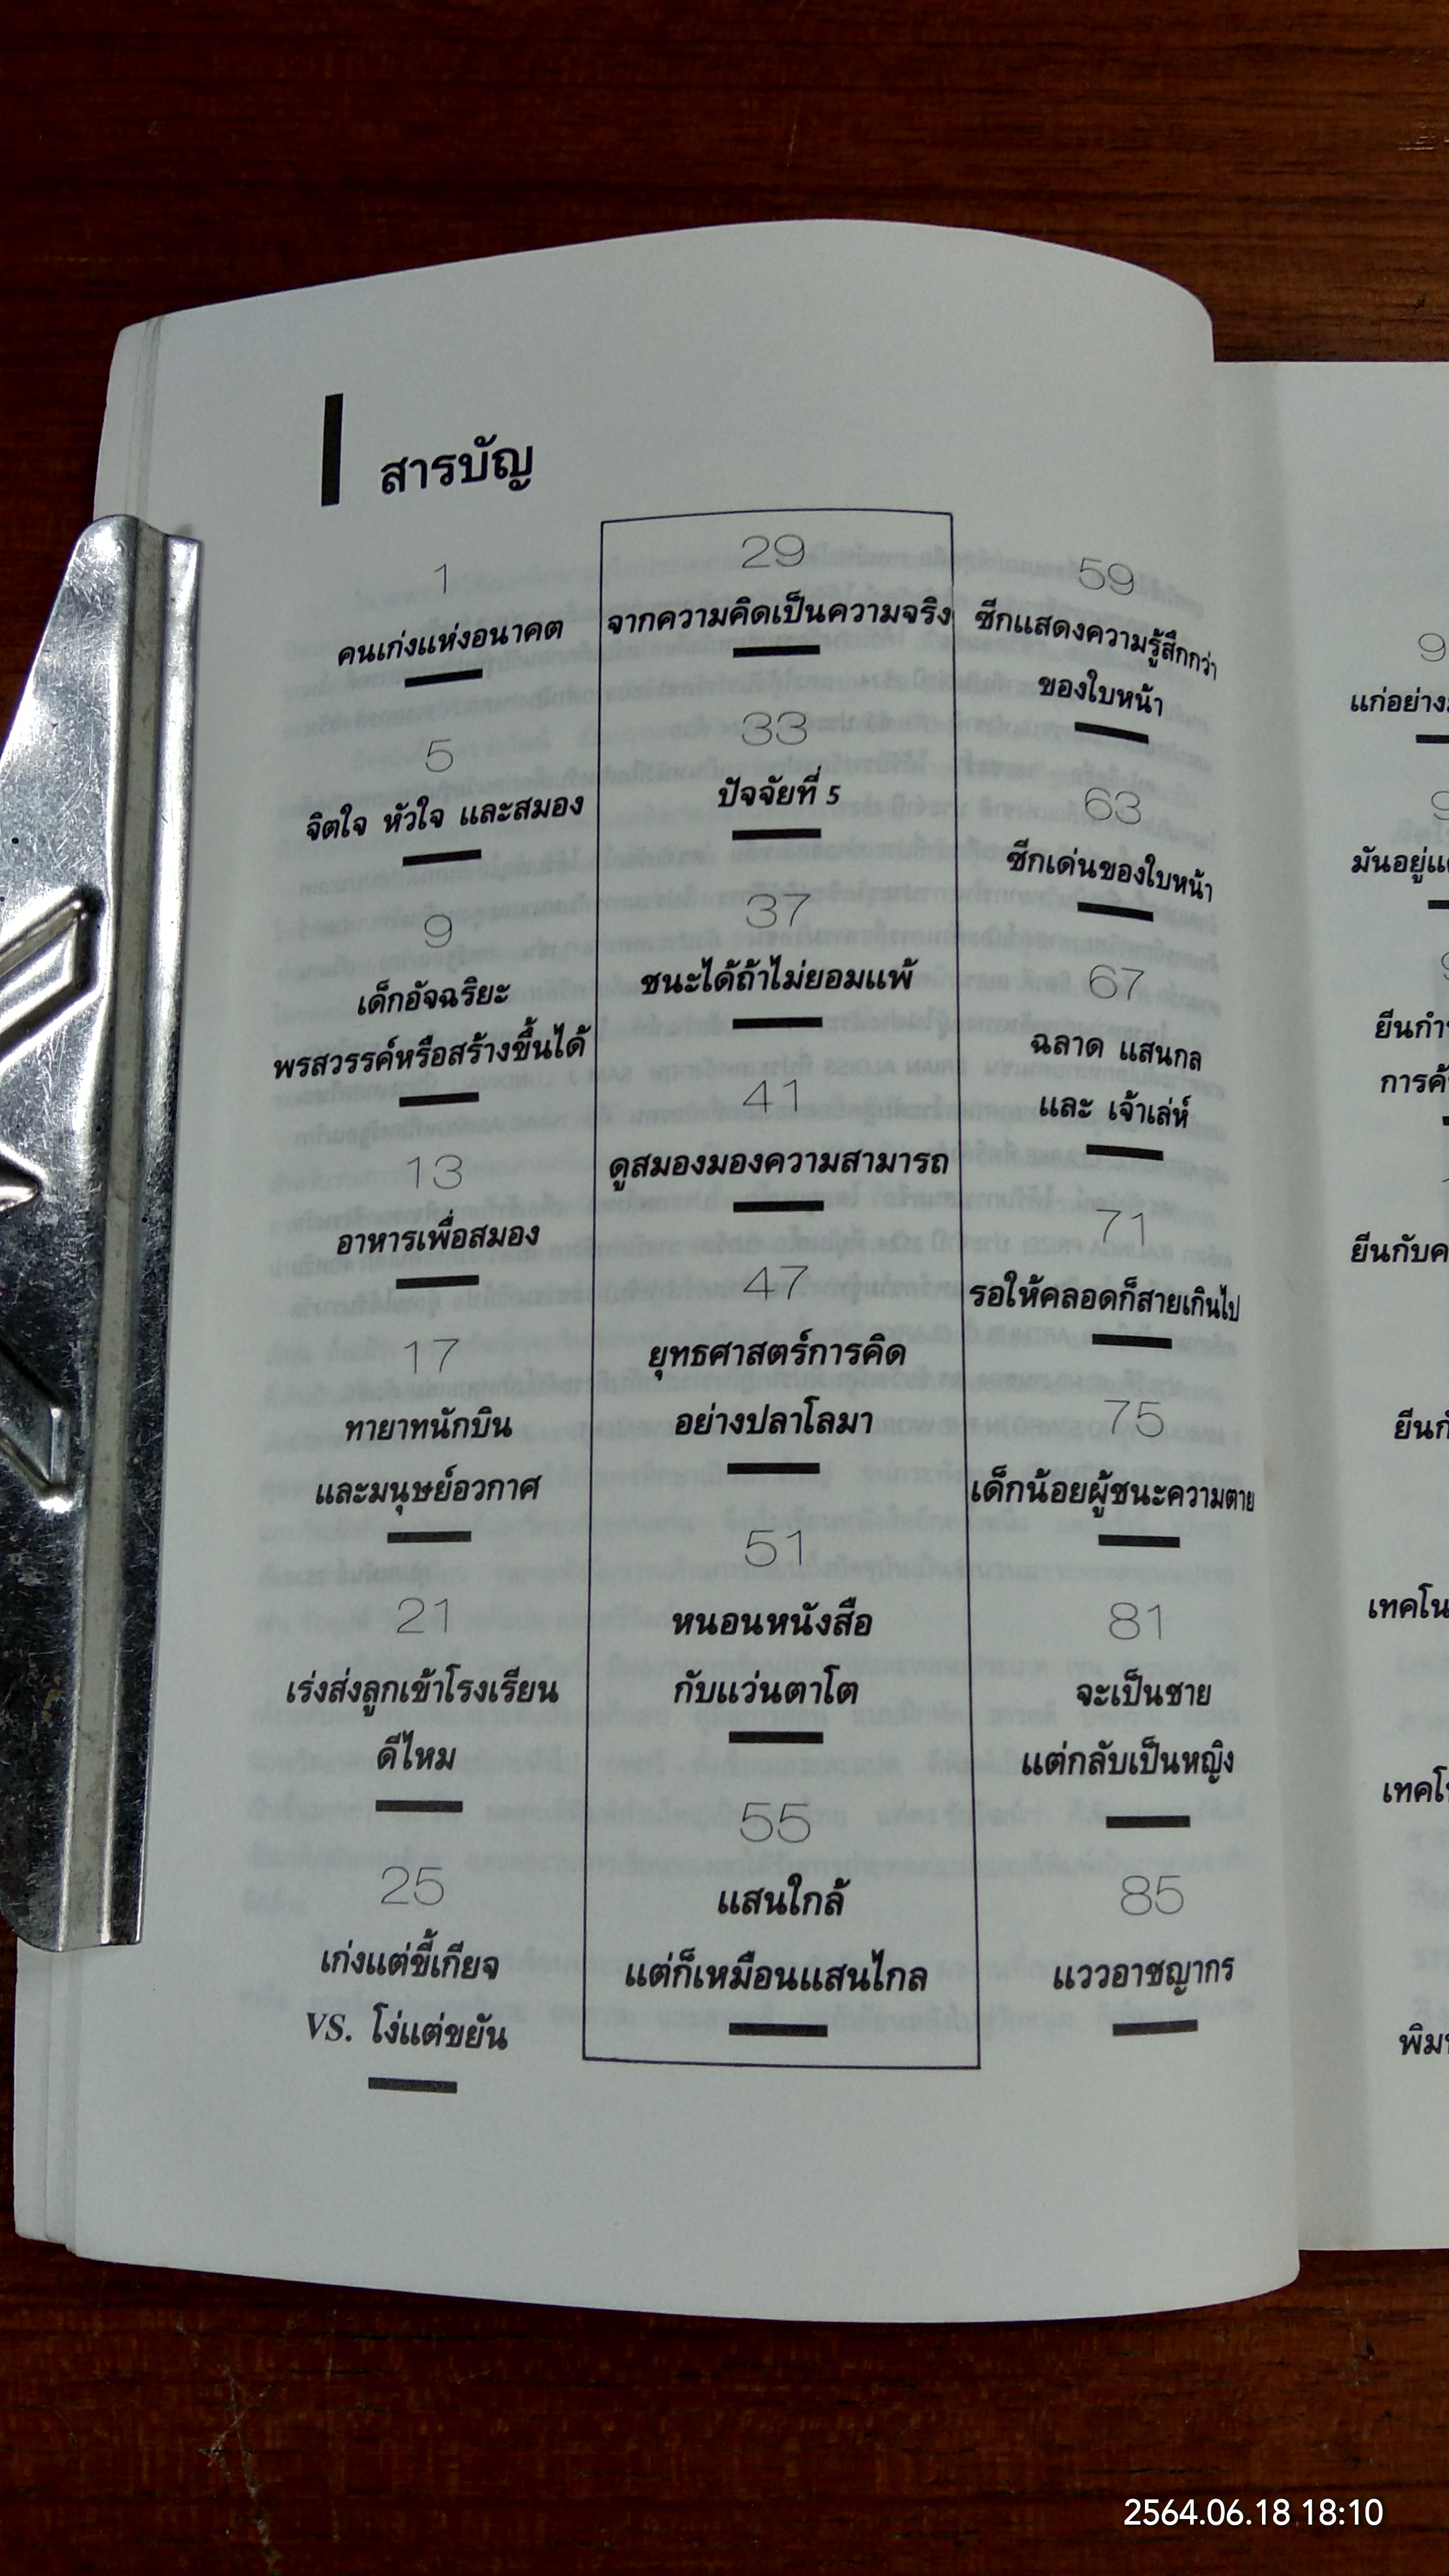 สารบัญ
1
คนเก่งแห่งอนาคต
5
จิตใจ หัวใจ และสมอง
9
เด็กอัจฉริยะ
พรสวรรค์หรือสร้างขึ้นได้
13
อาหารเพื่อสมอง
17
ทายาทนักบิน
และมนุษย์อวกาศ
21
เร่งส่งลูกเข้าโรงเรียน
ดีไหม
25
เก่งแต่ขี้เกียจ
VS. โง่แต่ขยัน
29
จากความคิดเป็นความจริง
33
ปัจจัยที่ 5
37
ชนะได้ถ้าไม่ยอมแพ้
41
ดูสมองมองความสามารถ
47
ยุทธศาสตร์การคิด
อย่างปลาโลมา
51
หนอนหนังสือ
กับแว่นตาโต
55
แสนใกล้
แต่ก็เหมือนแสนไกล
59
ซีกแสดงความรู้สึกกว่า
ของใบหน้า
63
ซีกเด่นของใบหน้า
67
ฉลาด แสนกล
และ เจ้าเล่ห์
71
รอให้คลอดก็สายเกินไป
75
เด็กน้อยผู้ชนะความตาย
81
จะเป็นชาย
แต่กลับเป็นหญิง
85
แววอาชญากร
9
แก่อย่าง
มันอยู่แ
ยีนกำ
การค้
ยีนกับค
ยีนก
เทคโน
เทคโ
พิม
2564.06.18 18:10